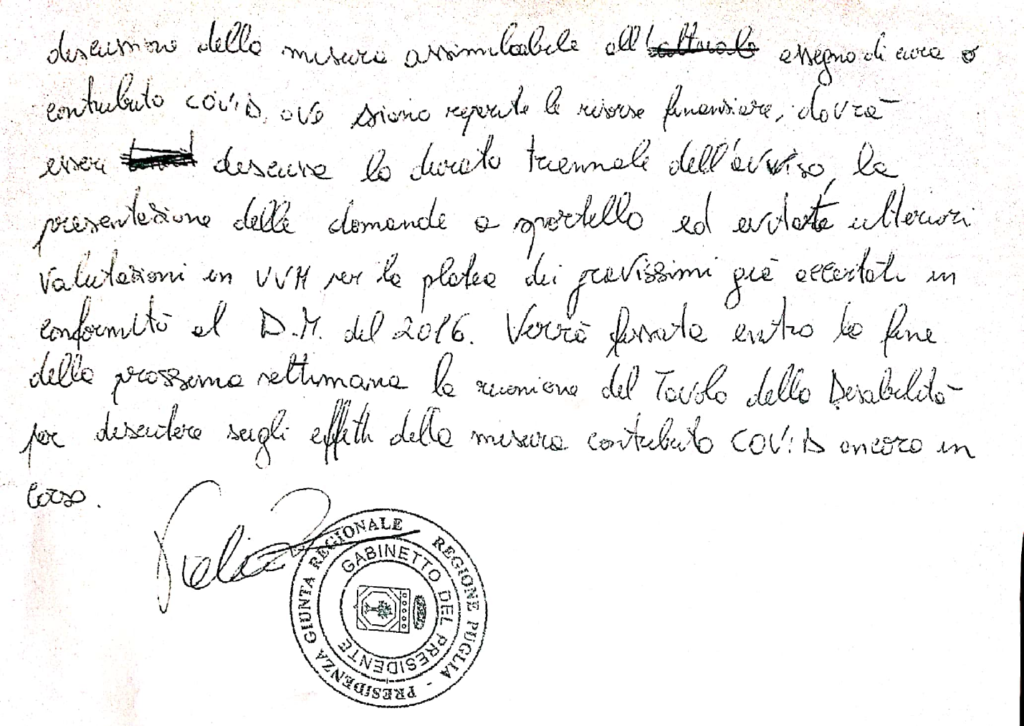 discussione della misura assimilabile all' assegno di cura o
contributo COVID, ove siano reperite le risorse finanziare, dovrà
esser discussa la durata triennale dell'avviso, la
presentazione delle domande a sportello ed evitate ulteriori
valutazioni in UVM per la platea dei gravissimi già accertati in
conformità al D.M. del 2016. Verrà fissata entro la fine
della prossima settimana la riunione del Tavolo della Disabilità
per discutere sugli effetti della misura contributo COVID ancora in
corso.
PRESIDENZA GIUNTA REGIONALE - REGIONE PUGLIA -
GABINETTO DEL PRESIDENTE